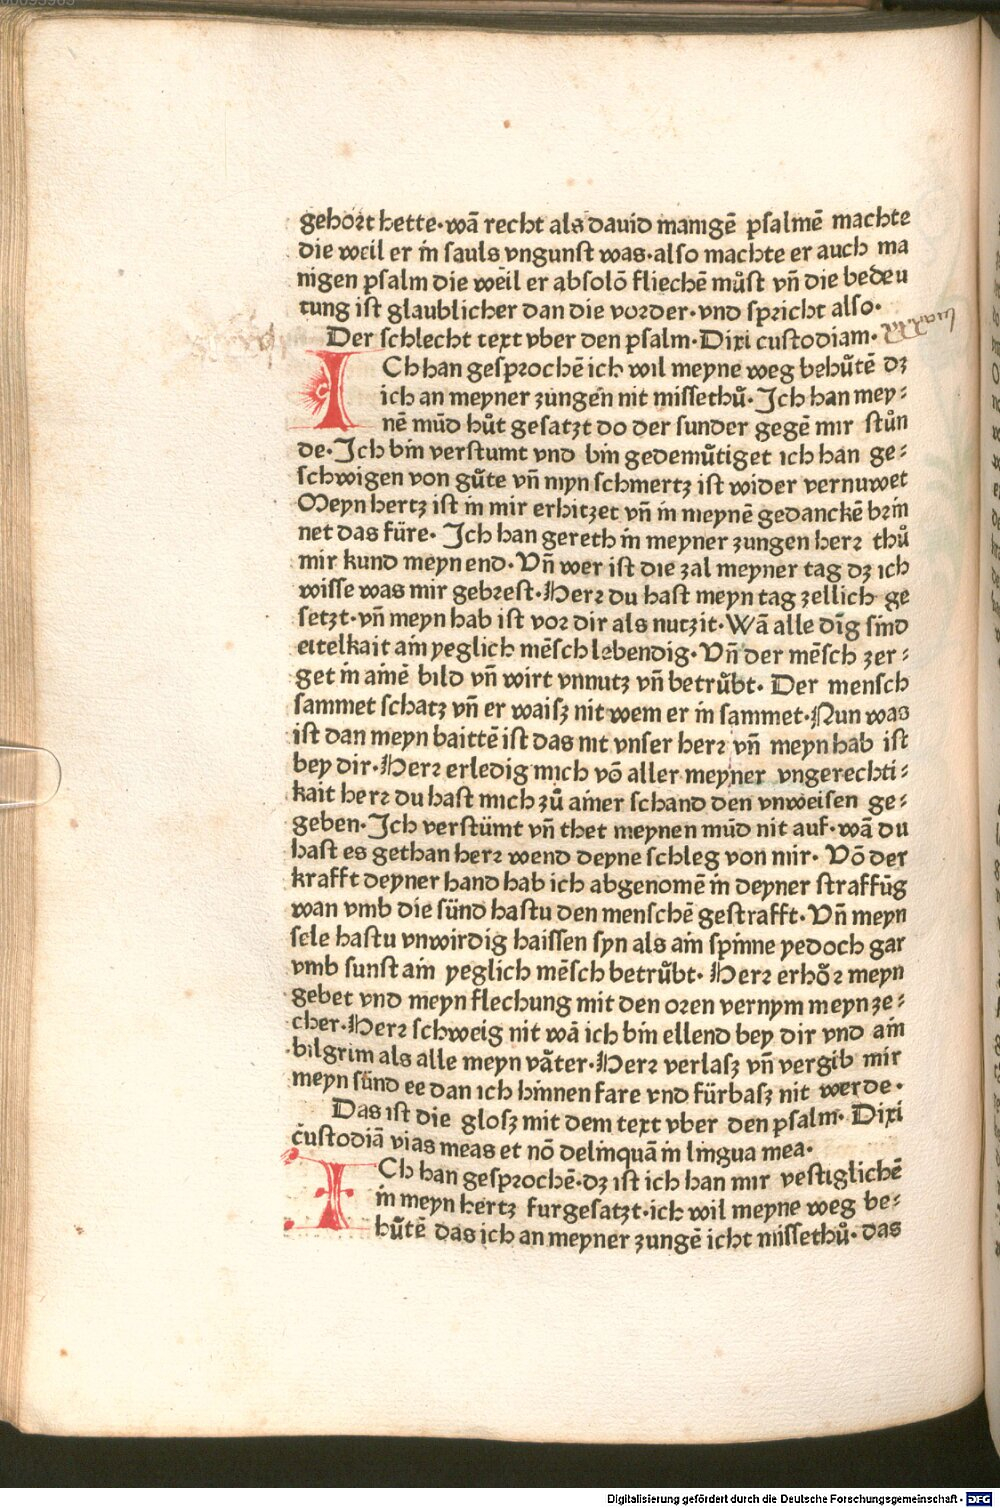 gehört hette·wā recht als dauid manigē psalmē machte
die weil er in sauls vngunst was·also machte er auch ma
nigen psalm die weil er absolō fliechē můst vñ die bedeu
tung ist glaublicher dan die vorder·vnd spricht also·
Der schlecht text vber den psalm·Dixi custodiam·
ICh han gesprochē ich wil meyne weg behůtē dz
ich an meyner zungen nit missethů·Ich han mey⸗
nē mūd hůt gesatzt do der sunder gegē mir stůn
de·Ich bin verstumt vnd bin gedemůtiget ich han ge⸗
schwigen von gůte vñ myn schmertz ist wider vernuwet
Meyn hertz ist in mir erhitzet vñ in meynē gedanckē brin
net das füre·Ich han gereth in meyner zungen herr thů
mir kund meyn end·Vñ wer ist die zal meyner tag dz ich
wisse was mir gebrest·Herr du hast meyn tag zellich ge
setzt·vñ meyn hab ist vor dir als nutzit·Wā alle dīg sind
eitelkait ain yeglich mēsch lebendig·Vñ der mēsch zer⸗
get in ainē bild vñ wirt vnnutz vñ betrůbt·Der mensch
sammet schatz vñ er waisz nit wem er in sammet·Nun was
ist dan meyn baittē ist das nit vnser herr vñ meyn hab ist
bey dir·Herr erledig mich vō aller meyner vngerechti⸗
kait herr du hast mich zů ainer schand den vnweisen ge⸗
geben·Ich verstümt vñ thet meynen mūd nit auf·wā du
hast es gethan herr wend deyne schleg von mir·Vō der
krafft deyner hand hab ich abgenomē in deyner straffūg
wan vmb die sünd hastu den menschē gestrafft·Vñ meyn
sele hastu vnwirdig haissen syn als ain spinne yedoch gar
vmb sunst ain yeglich mēsch betrůbt·Herr erhör meyn
gebet vnd meyn flechung mit den oren vernym meyn ze⸗
cher·Herr schweig nit wā ich bin ellend bey dir vnd ain
bilgrim als alle meyn våter·Herr verlasz vñ vergib mir
meyn sünd ee dan ich hinnen fare vnd fürbasz nit werde·
Das ist die glosz mit dem text vber den psalm·Dixi
custodiā vias meas et nō delinquā in lingua mea·
ICh han gesprochē·dz ist ich han mir vestiglichē
in meyn hertz furgesatzt·ich wil meyne weg be⸗
hůtē das ich an meyner zungē icht missethů·das
Digitalisierung gefördert durch die Deutsche Forschungsgemeinschaft - DFG